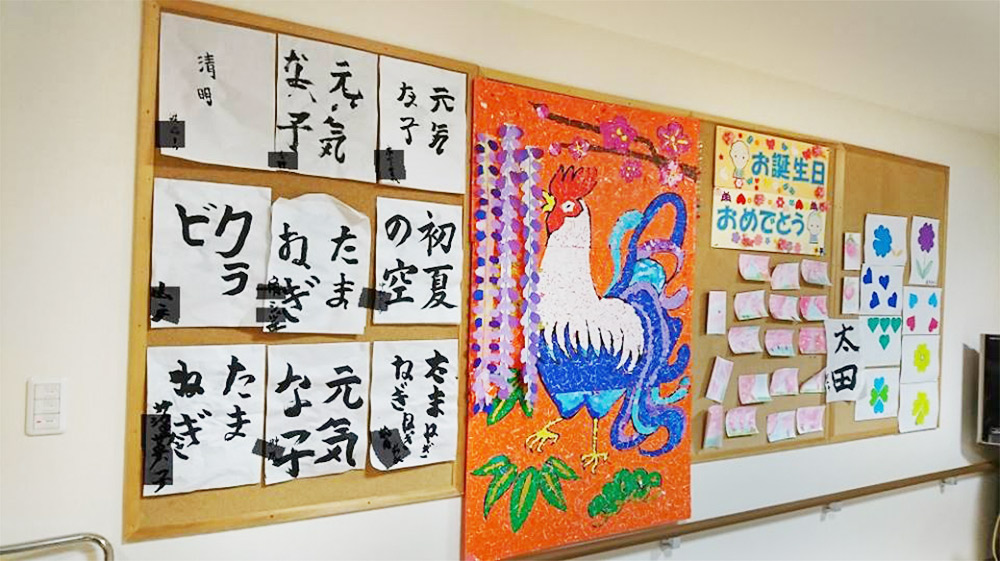 清明
元気
な子
元気
な子
ビクラ
たま
ねぎ
初夏
の空
たま
ねぎ
元気
な子
たまねぎ
ねぎ
お誕生日
おめでとう
太田